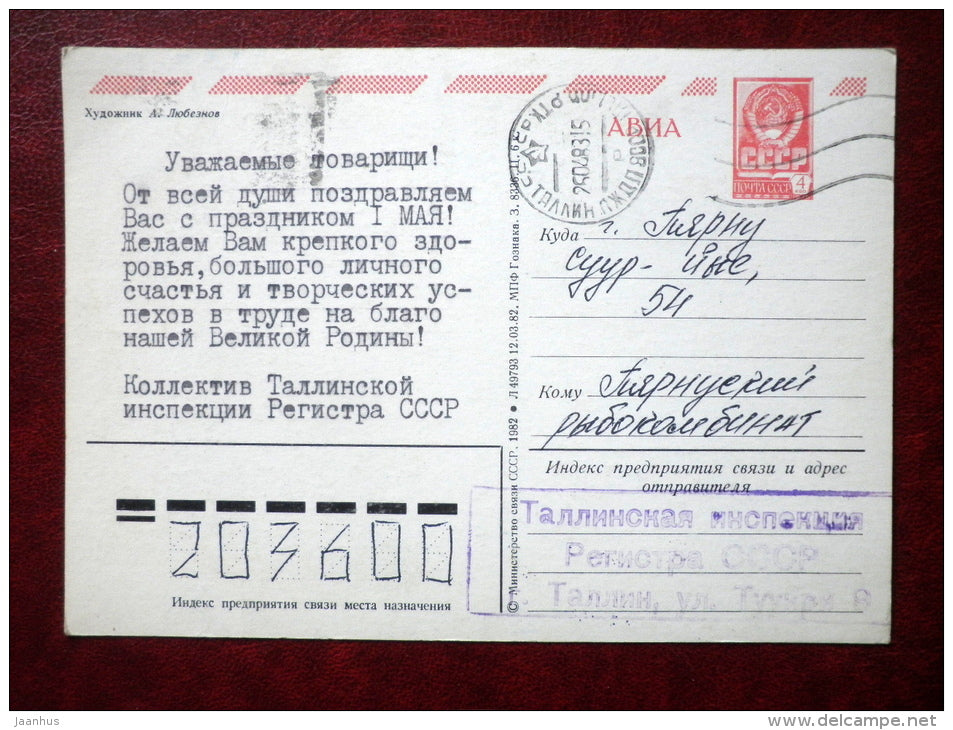 Художник А. Любезнов
Уважаемые товарищи!
От всей души поздравляем
Вас с праздником I МАЯ!
Желаем Вам крепкого здо-
ровья, большого личного
счастья и творческих ус-
пехов в труде на благо
нашей Великой Родины!
Коллектив Таллинской
инспекции Регистра СССР
203600
Индекс предприятия связи места назначения
© Министерство связи СССР. 1982 ● Л 49793 12.03.82. МПФ Гознака. З.
АВИА
СССР
ПОЧТА СССР
4
Куда г. Пярну
Суур-Йыe,
54
Кому Пярнуский
рыбокомбинат
Индекс предприятия связи и адрес
отправителя
Таллинская инспекция
Регистра СССР
г. Таллин, ул.
Jaanhus
delcampe.net